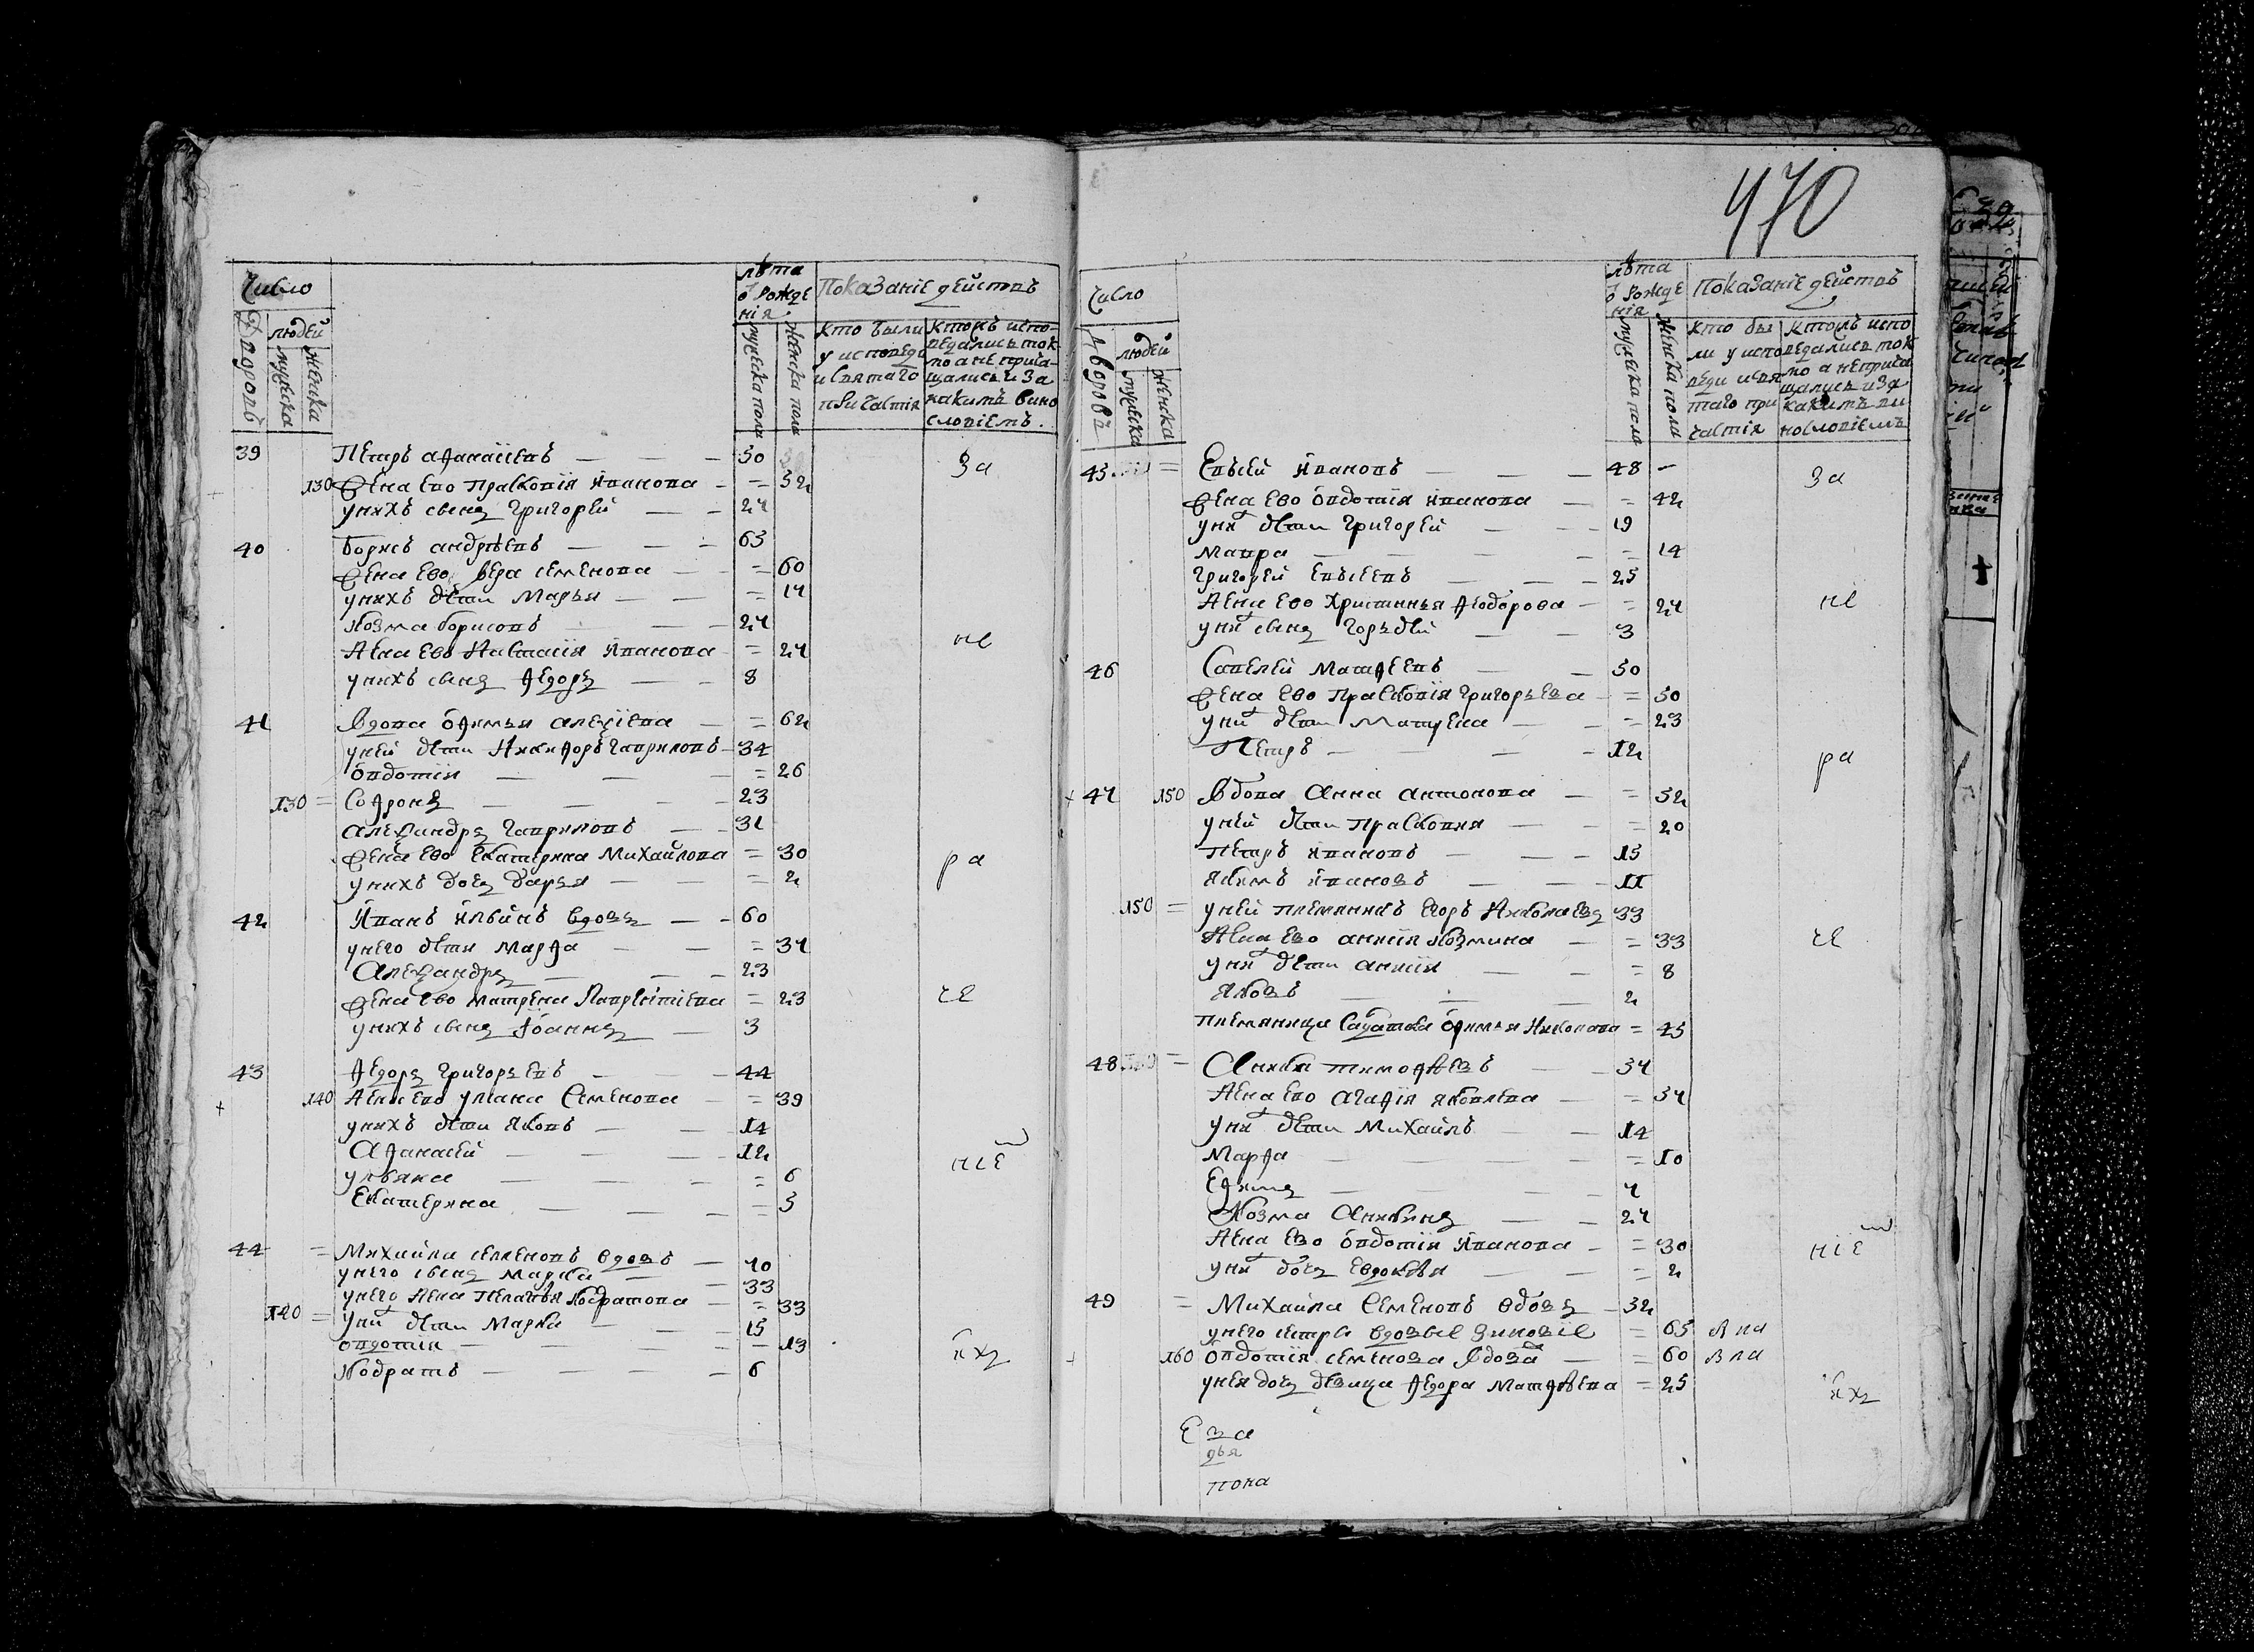 Число
людей
Дворовъ
мужеска
женска
лѣта
ѿ рожде
нія
мужеска пола
женска пола
Показаніе действъ
кто были
у исповеди
и святаго
причастія
ктожъ испо-
ведались ток
мо а не прича-
щались и за
какимъ вино
словіемъ.
39 Петръ Афанасіевъ — — — 50 За
130 жена ево Прасковія Иванова — = 52
у нихъ сынъ Григорей — — 24
40 Борисъ Андрѣевъ — — — 63
жена ево Вера Семенова — — = 60
у нихъ дѣти Марья — — = 14
Козма Борисовъ — — 24
жена ево Настасія Иванова = 24 не
у нихъ сынъ Федоръ — — 8
41 Вдова Офимья Алексіева — = 62
у ней дѣти Никифоръ Гавриловъ — 34
Овдотія — — — = 26
130 = Софронъ — — — 23
Александръ Гавриловъ — — 31
жена ево Екатерина Михайлова = 30 ра
у нихъ дочь Дарья — — = 2
42 Иванъ Ильинъ вдовъ — — 60
у него дѣти Марфа — — = 34
Александръ — — — 23
жена ево Матрена Лаврентіева = 23 че
у нихъ сынъ Іоаннъ — 3
43 Федоръ Григорьевъ — — 44
140 жена ево Улиана Семенова — = 39
у нихъ дѣти Яковъ — — 14
Афанасей — — — 12 ніе
Ульяна — — — = 6
Екатерина — — — = 5
44 = Михайла Семеновъ вдовъ — 70
у него сынъ Марка — — 33
у него жена Пелагѣя Кодратова — = 33
140 = у ни дѣти Марка — — 15
Овдотія — — — = 13 ихъ
Кодратъ — — — 6
470
Число
людей
Дворовъ
мужеска
женска
лѣта
ѿ рожде
нія
мужеска пола
женска пола
Показаніе действъ
кто бы
ли у испо
веди и свя
таго при
частія
ктожъ испо
ведались ток
мо а неприча
щались и за
какимъ ви
нословіемъ
45 = Евсѣй Ивановъ — — 48 — За
жена ево Овдотія Иванова — = 42
у ни дѣти Григорей — — 19
Мавра — — — = 14
Григорей Евсѣевъ — — — 25
жена ево Христинья Феодорова — = 24 не
у ни сынъ Горьдѣй — — 3
46 Савелей Матфеевъ — — 50
жена ево Прасковія Григорьева — = 50
у ни дѣти Матрена — — = 23
Петръ — — — 12 ра
47 150 Вдова Анна Антонова — = 52
у ней дѣти Прасковия — — = 20
Петръ Ивановъ — — — 15
Якимъ Ивановъ — — 11
150 = у ней племянникъ Егоръ Николаевъ 33
жена ево Аннія Козмина — = 33 че
у ни дѣти Аннія — — = 8
Яковъ — — — 2
племянница салдатка Офимья Николаева = 45
48 = Аника Тимофѣевъ — — 34
жена ево Агафія Яковлева — = 34
у ни дѣти Михайлъ — — 14
Марфа — — — = 10
Ефимъ — — — 4
Козма Аникинъ — — 24
жена ево Овдотія Иванова — = 30 ніе
у ни дочь Евдокѣя — — = 2
49 = Михайла Семеновъ вдовъ — 52
у него сестра вдовые Зиновіе = 65
160 Овдотія Семенова вдова — = 60
у нея дочь дѣвица Федора Матфѣева = 25 ихъ